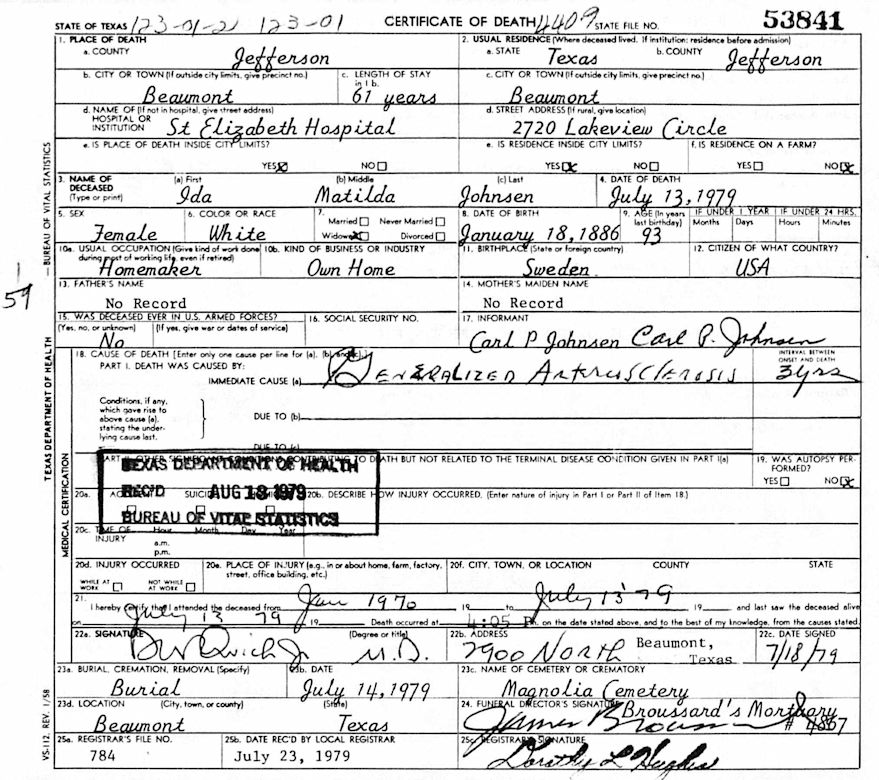 STATE OF TEXAS 123-01-21 123-01 CERTIFICATE OF DEATH 4409 STATE FILE NO. 53841
1. PLACE OF DEATH
a. COUNTY
Jefferson
2. USUAL RESIDENCE (Where deceased lived. If institution: residence before admission)
a. STATE b. COUNTY
Texas Jefferson
b. CITY OR TOWN (If outside city limits, give precinct no.)
Beaumont
c. LENGTH OF STAY in 1b.
61 years
c. CITY OR TOWN (If outside city limits, give precinct no.)
Beaumont
d. NAME OF (If not in hospital, give street address)
HOSPITAL OR
INSTITUTION St Elizabeth Hospital
d. STREET ADDRESS (If rural, give location)
2720 Lakeview Circle
e. IS PLACE OF DEATH INSIDE CITY LIMITS?
YES NO
e. IS RESIDENCE INSIDE CITY LIMITS?
YES NO
f. IS RESIDENCE ON A FARM?
YES NO
3. NAME OF DECEASED (Type or print)
(a) First (b) Middle (c) Last
Ida Matilda Johnsen
4. DATE OF DEATH
July 13, 1979
5. SEX
Female
6. COLOR OR RACE
White
7. Married Never Married
Widowed Divorced
8. DATE OF BIRTH
January 18, 1886
9. AGE (In years last birthday)
93
IF UNDER 1 YEAR IF UNDER 24 HRS.
Months Days Hours Minutes
10a. USUAL OCCUPATION (Give kind of work done during most of working life, even if retired)
Homemaker
10b. KIND OF BUSINESS OR INDUSTRY
Own Home
11. BIRTHPLACE (State or foreign country)
Sweden
12. CITIZEN OF WHAT COUNTRY?
USA
13. FATHER'S NAME
No Record
14. MOTHER'S MAIDEN NAME
No Record
15. WAS DECEASED EVER IN U.S. ARMED FORCES?
(Yes, no, or unknown) (If yes, give war or dates of service)
No
16. SOCIAL SECURITY NO.
17. INFORMANT
Carl P Johnsen Carl P. Johnsen
18. CAUSE OF DEATH [Enter only one cause per line for (a), (b), and (c).]
PART I. DEATH WAS CAUSED BY:
IMMEDIATE CAUSE (a) Generalized Arteriosclerosis
INTERVAL BETWEEN ONSET AND DEATH
3 yrs
Conditions, if any, which gave rise to above cause (a), stating the underlying cause last.
DUE TO (b)
DUE TO (c)
PART II. OTHER SIGNIFICANT CONDITIONS CONTRIBUTING TO DEATH BUT NOT RELATED TO THE TERMINAL DISEASE CONDITION GIVEN IN PART I(a)
19. WAS AUTOPSY PERFORMED?
YES NO
TEXAS DEPARTMENT OF HEALTH
REC'D AUG 13 1979
BUREAU OF VITAL STATISTICS
20a. SUICIDE
20b. DESCRIBE HOW INJURY OCCURRED. (Enter nature of injury in Part I or Part II of Item 18.)
20c. TIME OF INJURY Hour Month Day Year
a.m.
p.m.
20d. INJURY OCCURRED
WHILE AT WORK NOT WHILE AT WORK
20e. PLACE OF INJURY (e.g., in or about home, farm, factory, street, office building, etc.)
20f. CITY, TOWN, OR LOCATION COUNTY STATE
21. I hereby certify that I attended the deceased from Jan 1970 19 to July 13 79 19 and last saw the deceased alive
on July 13 79 19 Death occurred at 4:05 P m. on the date stated above, and to the best of my knowledge, from the causes stated.
22a. SIGNATURE (Degree or title)
M.D.
22b. ADDRESS
2900 North Beaumont, Texas
22c. DATE SIGNED
7/18/79
23a. BURIAL, CREMATION, REMOVAL (Specify)
Burial
23b. DATE
July 14, 1979
23c. NAME OF CEMETERY OR CREMATORY
Magnolia Cemetery
23d. LOCATION (City, town, or county) (State)
Beaumont Texas
24. FUNERAL DIRECTOR'S SIGNATURE
Broussard's Mortuary
# 4867
25a. REGISTRAR'S FILE NO.
784
25b. DATE REC'D BY LOCAL REGISTRAR
July 23, 1979
25c. REGISTRAR'S SIGNATURE
Dorothy L Hughes
TEXAS DEPARTMENT OF HEALTH — BUREAU OF VITAL STATISTICS
MEDICAL CERTIFICATION
VS-112, REV. 1/58
1
59